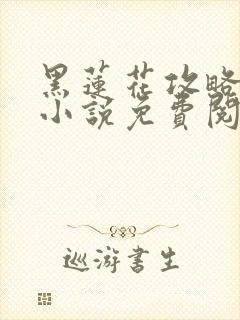 黑蓮花攻略
小說免費閱
巡游書生